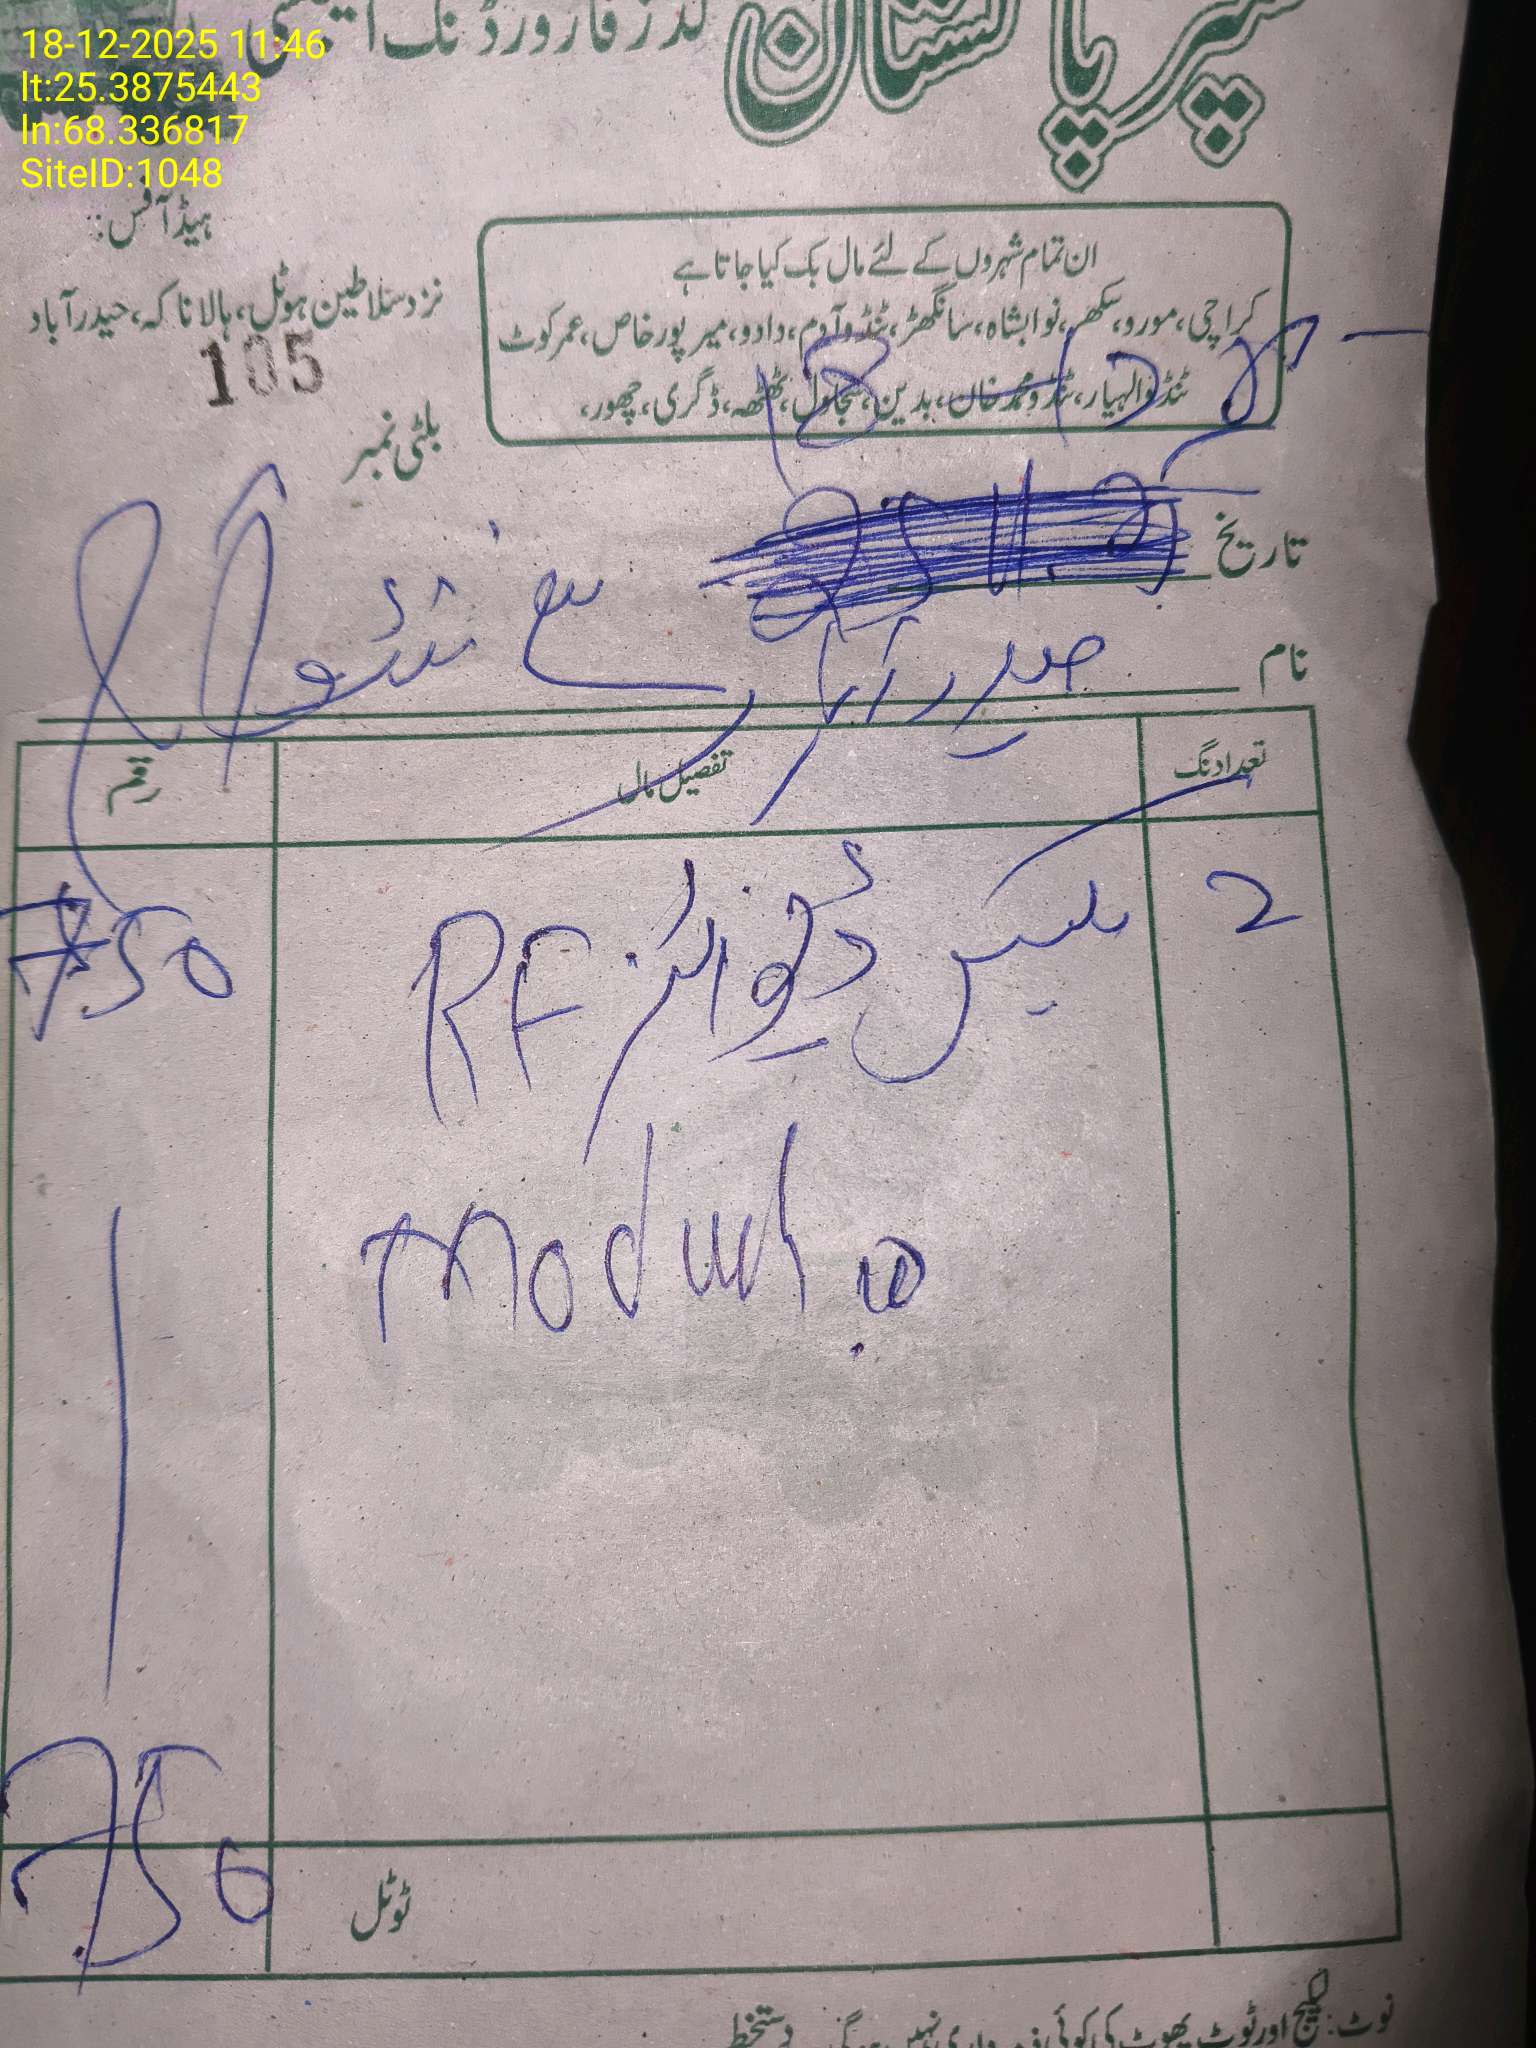 18-12-2025 11:46
lt:25.3875443
ln:68.336817
SiteID:1048
پاکستان گڈز فارورڈنگ
ہیڈ آفس:
نزد سلاطین ہوٹل، ہالا ناکہ، حیدرآباد
105
بلٹی نمبر
ان تمام شہروں کے لئے مال بک کیا جاتا ہے
کراچی، مورو، سکھر، نوابشاہ، سانگھڑ، ٹنڈوآدم، دادو، میرپورخاص، عمرکوٹ
ٹنڈوالہیار، ٹنڈو محمد خان، بدین، سجاول، ٹھٹھہ، ڈگری، چھور،
18
تاریخ
نام حیدرآباد سے
تعداد نگ تفصیل مال رقم
2 بکس RF 750
Module
ٹوٹل 750
نوٹ: لیکیج اور ٹوٹ پھوٹ کی کوئی ذمہ داری نہیں ہوگی۔ دستخط